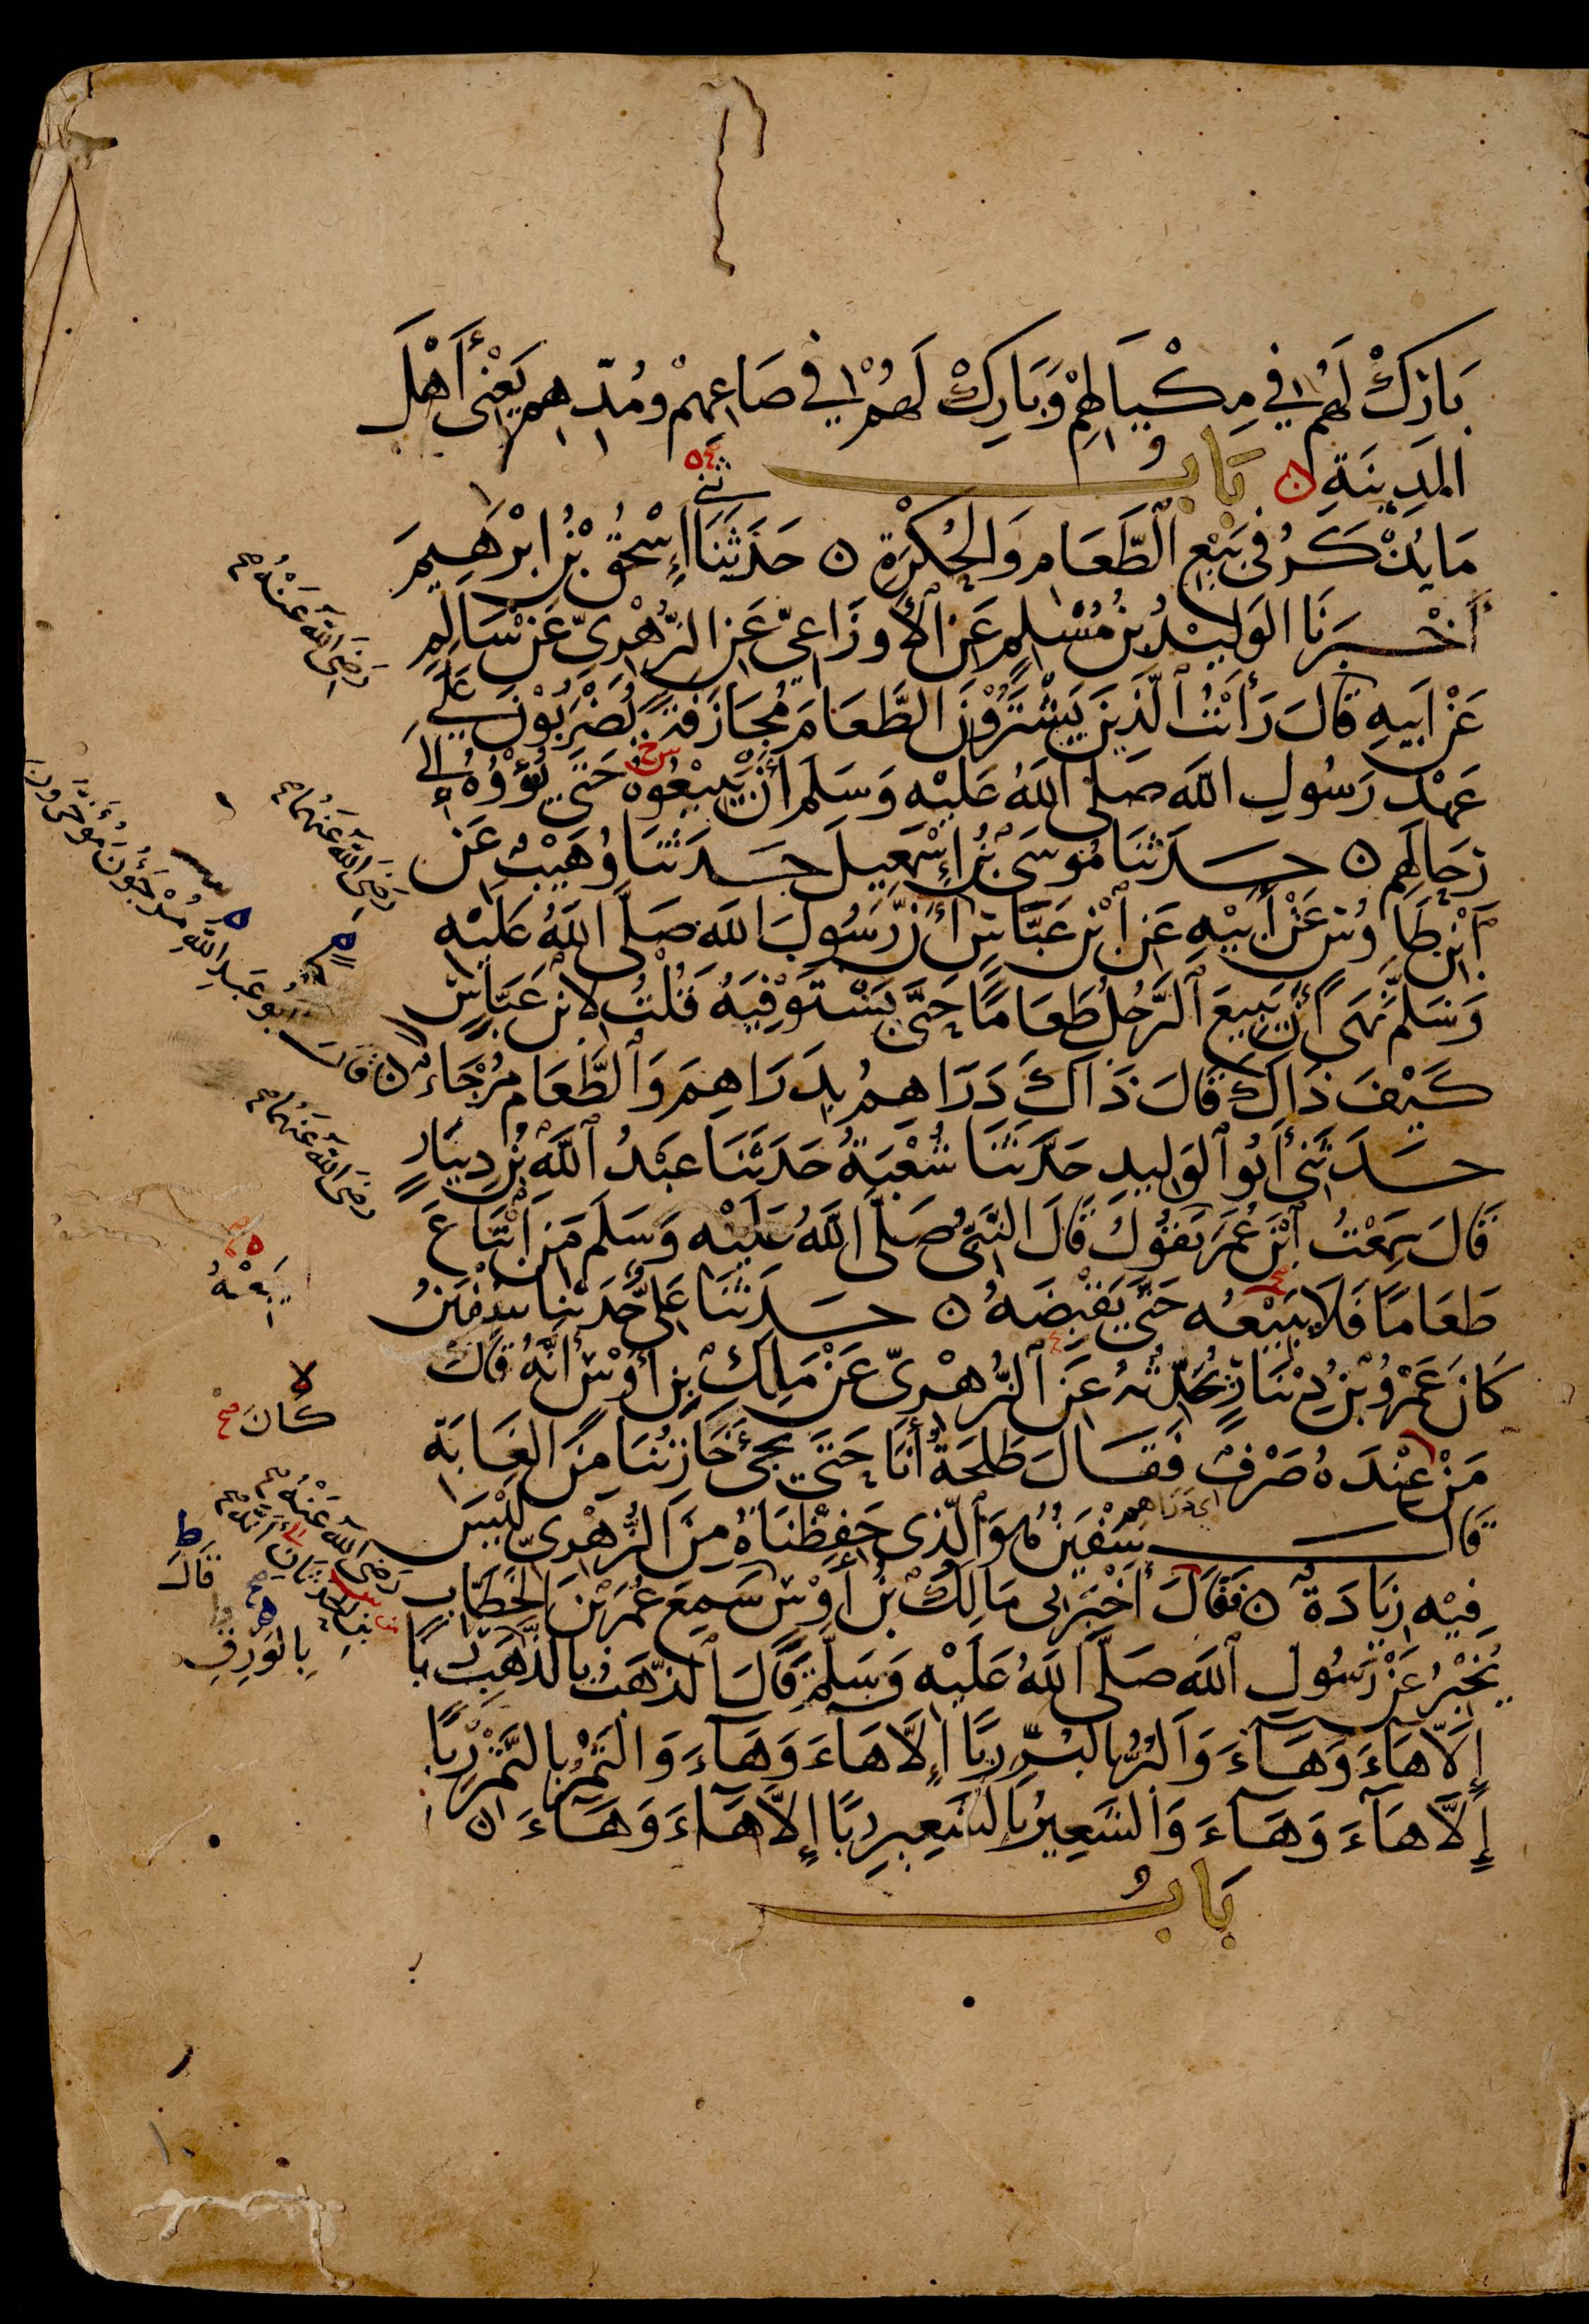 بَارِكْ لَهُمْ فِي مِكْيَالِهِمْ وَبَارِكْ لَهُمْ فِي صَاعِهِمْ وَمُدِّهِمْ يَعْنِي أَهْلَ
المَدِينَةِ ن بَابُ
مَا يُذْكَرُ فِي بَيْعِ الطَّعَامِ وَالحُكْرَةِ ن حَدَّثَنَا إِسْحٰقُ بْنُ إبْرٰهِيمَ
ثني
أَخْبَرَنَا الوَلِيدُ بْنُ مُسْلِمٍ عَنِ الأَوزَاعِيِّ عَنِ الزُّهْرِيِّ عَنْ سَالِمٍ
رَضِيَ اللّٰهُ عَنْهُ
عَنْ أَبِيهِ قَالَ رَأَيْتُ الَّذِينَ يَشْتَرُوْنَ الطَّعَامَ مُجَازَفَةً يُضْرَبُوْنَ عَلَى
عَهْدِ رَسُولِ اللّٰهِ صَلَّى اللّٰهُ عَلَيْهِ وَسَلَّمَ أَنْ يَبِيْعُوهُ حَتَّى يُؤْوُهُ إِلَى
رِحَالِهِمْ ن حَدَّثَنَا مُوسَى بْنُ إِسْمٰعِيلَ حَدَّثَنَا وُهَيْبٌ عَنِ
ابْنِ طَاوُسٍ عَنْ أَبِيْهِ عَنِ ابْنِ عَبَّاسٍ أَنَّ رَسُولَ اللّٰهِ صَلَّى اللّٰهُ عَلَيْهِ
رَضِيَ اللّٰهُ عَنْهُمَا
وَسَلَّمَ نَهَى أَنْ يَبِيعَ الرَّجُلُ طَعَامًا حَتَّى يَسْتَوْفِيَهُ قُلْتُ لِابْنِ عَبَّاسٍ
كَيْفَ ذَاكَ قَالَ ذَاكَ دَرَاهِمُ بِدَرَاهِمَ وَالطَّعَامُ مُرْجَاءٌ ن
قَالَ أَبُو عَبْدِ اللّٰهِ مُرْجَؤُنَ مُؤَخَّرُونَ
حَدَّثَنِي أَبُو الوَلِيدِ حَدَّثَنَا شُعْبَةُ حَدَّثَنَا عَبْدُ اللّٰهِ بْنُ دِينَارٍ
قَالَ سَمِعْتُ ابْنَ عُمَرَ يَقُولُ قَالَ النَّبِيُّ صَلَّى اللّٰهُ عَلَيْهِ وَسَلَّمَ مَنِ ابْتَاعَ
رَضِيَ اللّٰهُ عَنْهُمَا
طَعَامًا فَلَا يَبِيْعُهُ حَتَّى يَقْبِضَهُ ن حَدَّثَنَا عَلِيٌّ حَدَّثَنَا سُفْيٰنُ
يَبِعْهُ
كَانَ عَمْرُو بْنُ دِيْنَارٍ يُحَدِّثُهُ عَنِ الزُّهْرِيِّ عَنْ مٰلِكِ بْنِ أَوْسٍ أَنَّهُ قَالَ
كَانَ
مَنْ عِنْدَهُ صَرْفٌ فَقَالَ طَلْحَةُ أَنَا حَتَّى يَجِيءَ خَازِنُنَا مِنَ الغَابَةِ
قَالَ سُفْيٰنُ هُوَ الَّذِي حَفِظْنَاهُ مِنَ الزُّهْرِيِّ لَيْسَ
فِيْهِ زِيَادَةٌ ن فَقَالَ أَخْبَرَنِي مَالِكُ بْنُ أَوْسٍ سَمِعَ عُمَرَ بْنَ الخَطَّابِ
رَضِيَ اللّٰهُ عَنْهُ
قَالَ
بْنِ الحَدَثَانِ
بِالوَرِقِ
يُخْبِرُ عَنْ رَسُولِ اللّٰهِ صَلَّى اللّٰهُ عَلَيْهِ وَسَلَّمَ قَالَ الذَّهَبُ بِالذَّهَبِ رِبًا
إِلَّا هَاءَ وَهَاءَ وَالبُرُّ بِالبُرِّ رِبًا إِلَّا هَاءَ وَهَاءَ وَالتَّمْرُ بِالتَّمْرِ رِبًا
إِلَّا هَاءَ وَهَاءَ وَالشَّعِيرُ بِالشَّعِيرِ رِبًا إِلَّا هَاءَ وَهَاءَ ن
بَابُ